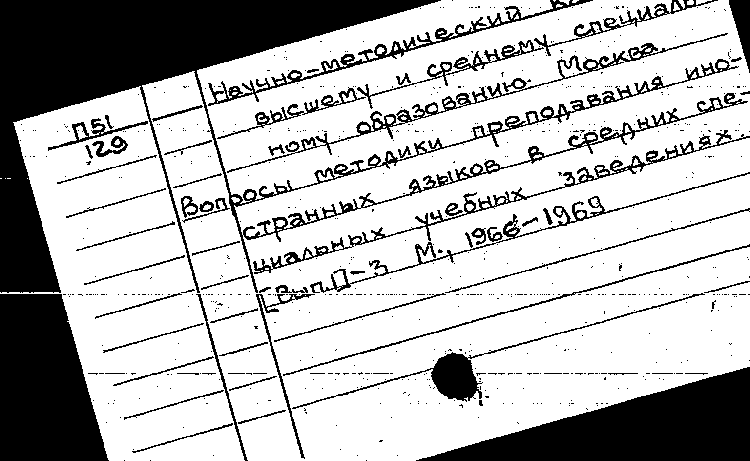 П51
129
Научно-методический
высшему и среднему специаль
ному образованию. Москва.
Вопросы методики преподавания ино-
странных языков в средних спе-
циальных учебных заведениях.
[Вып.]-3 М., 1966-1969